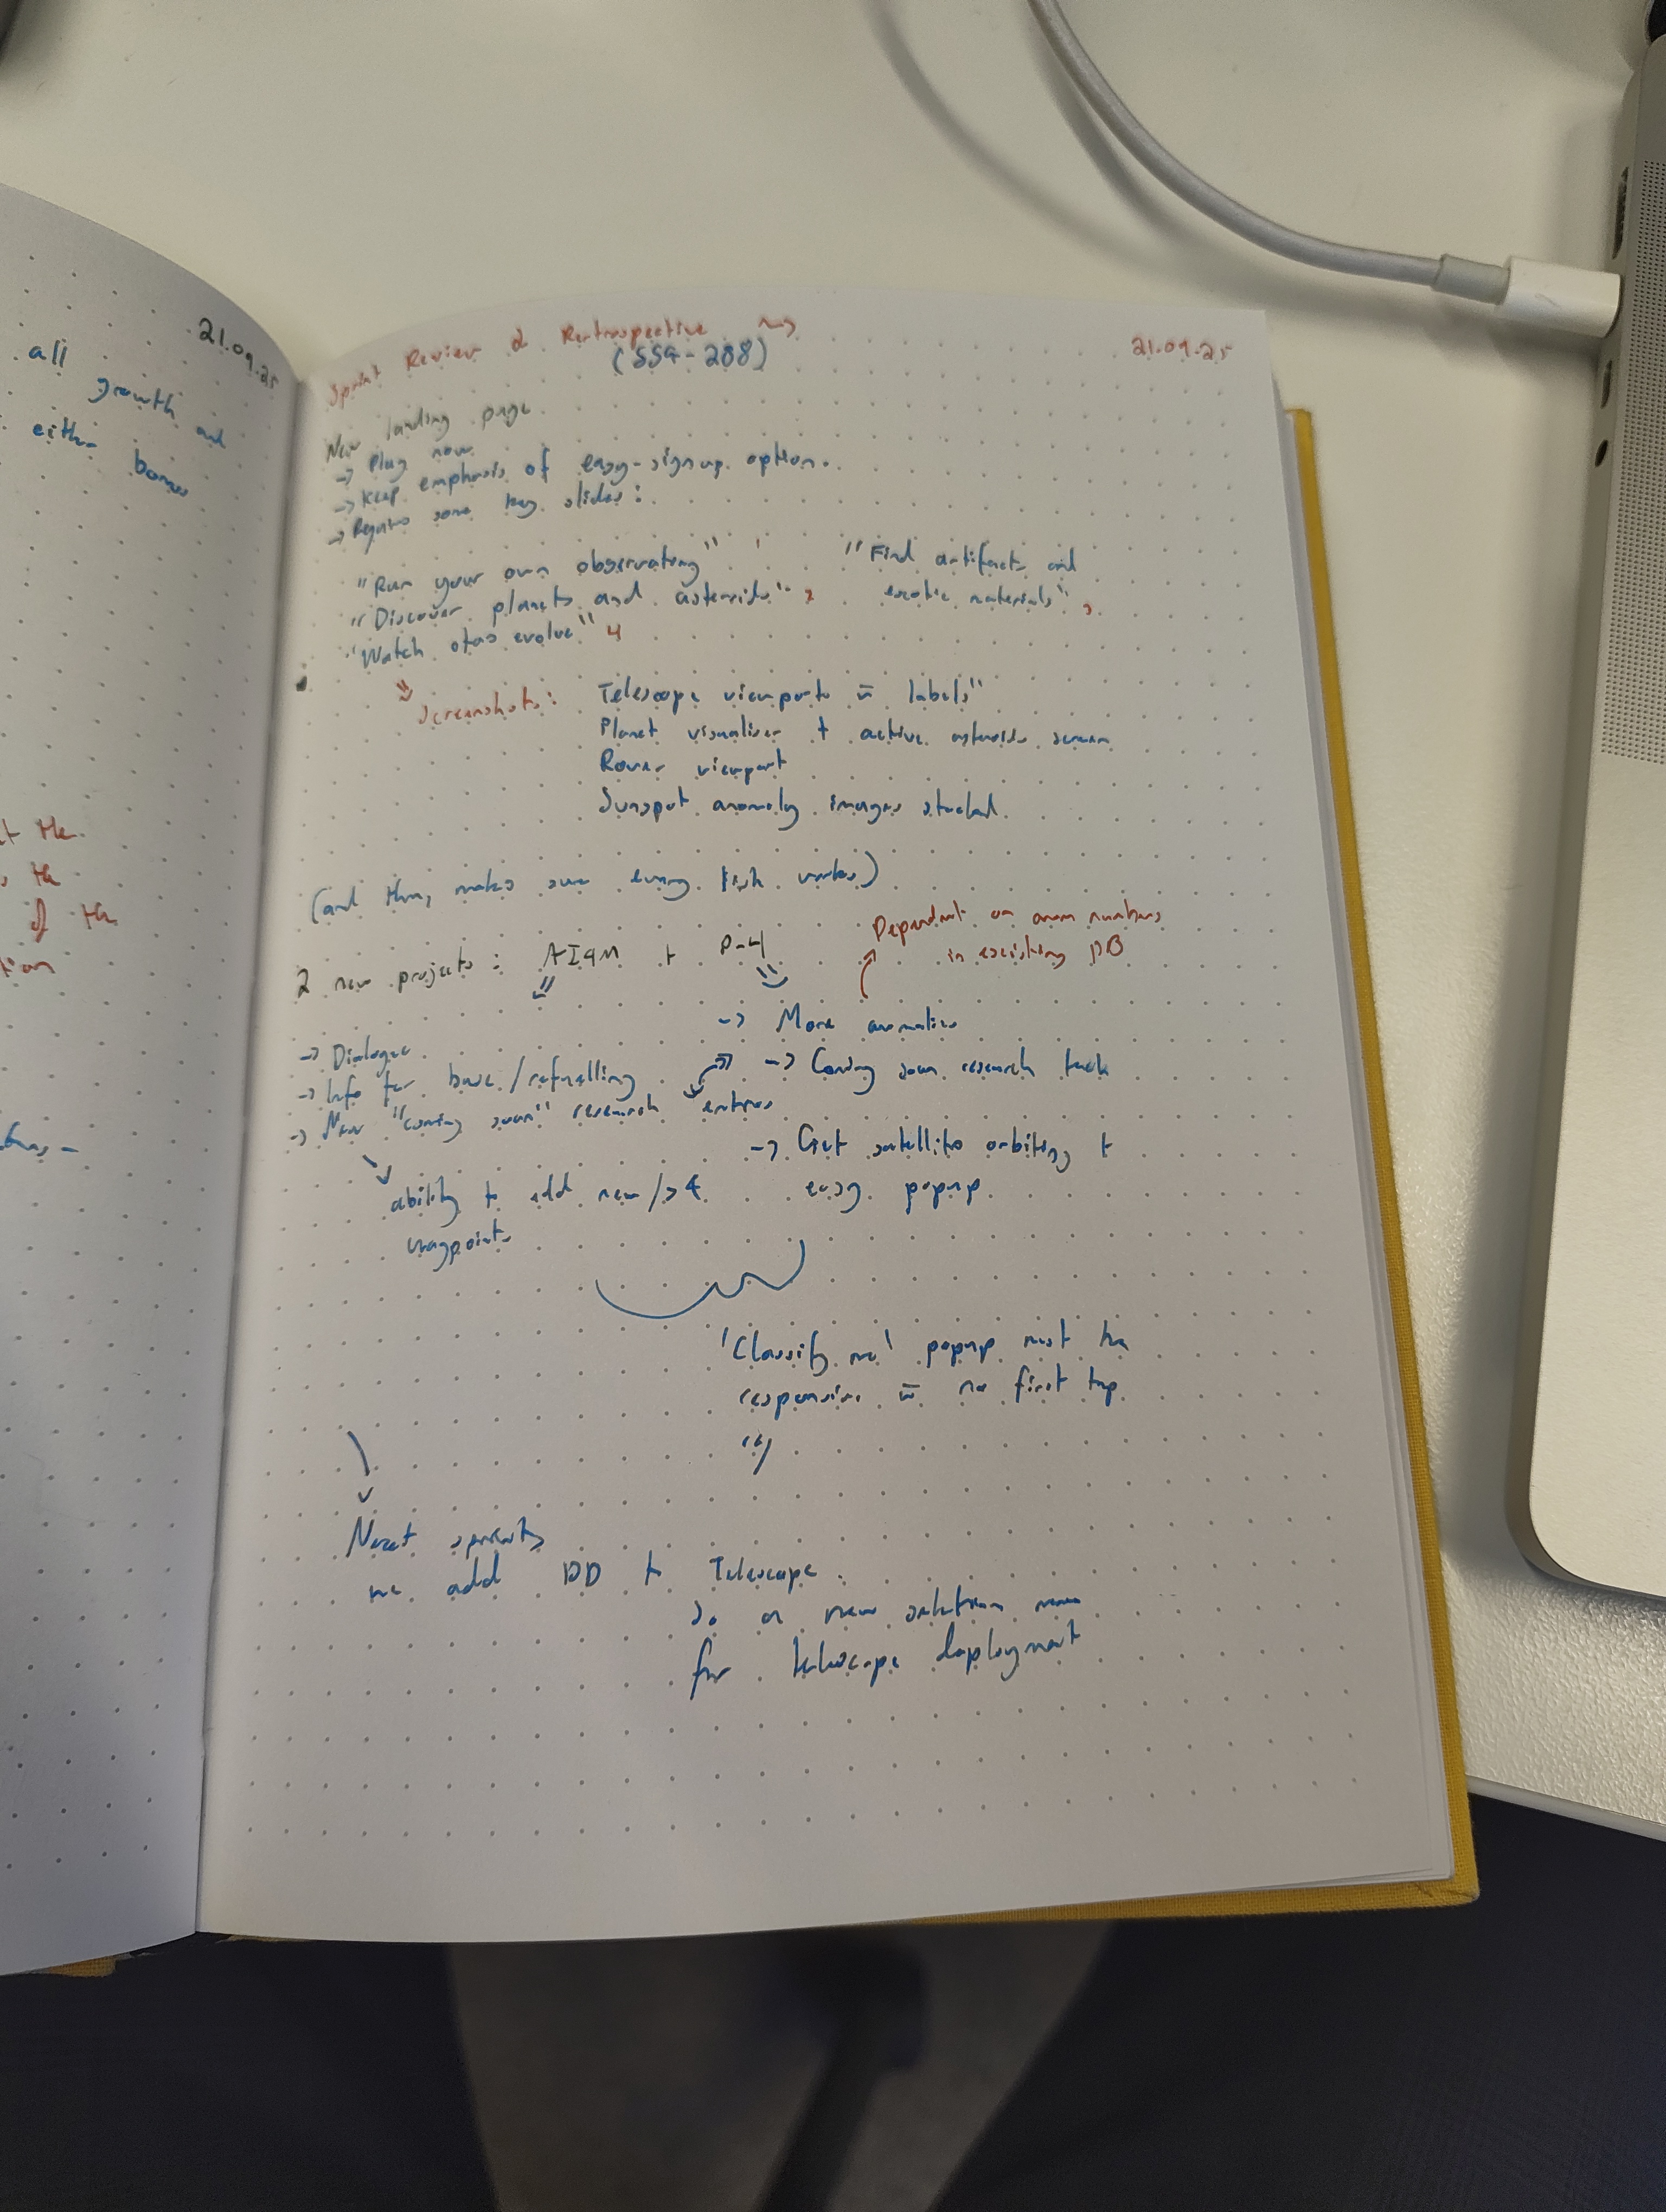 all
growth and
either bonus
21.09.25
t the
s the
of the
tion
Sprint Review & Rertrospective
(SSG-208)
21.09.25
New landing page
-> Play now
-> Keep emphasis of easy-signup option.
-> Requires some key slides:
"Run your own observatory"
"Discover planets and asteroids" 2
"Watch stars evolve" 4
"Find artifacts and
exotic materials" 3
Screenshots:
Telescope viewports w labels"
Planet visualiser + active asteroids screen
Rover viewport
Sunspot anomaly images stacked
(and then, makes sure every works)
2 new projects: AI4M + P-4
Dependent on anom numbers
in existing DB
-> Dialogue
-> Info for base/refuelling
-> New "coming soon" research entries
ability to add new/>4
waypoints
-> More anomalies
-> Coming soon research task
-> Get satellite orbiting +
easy popup
'Classify me' popup must be
responsive w no first tap
Next sprints
we add DD to Telescope
So a new selection menu
for telescope deployment